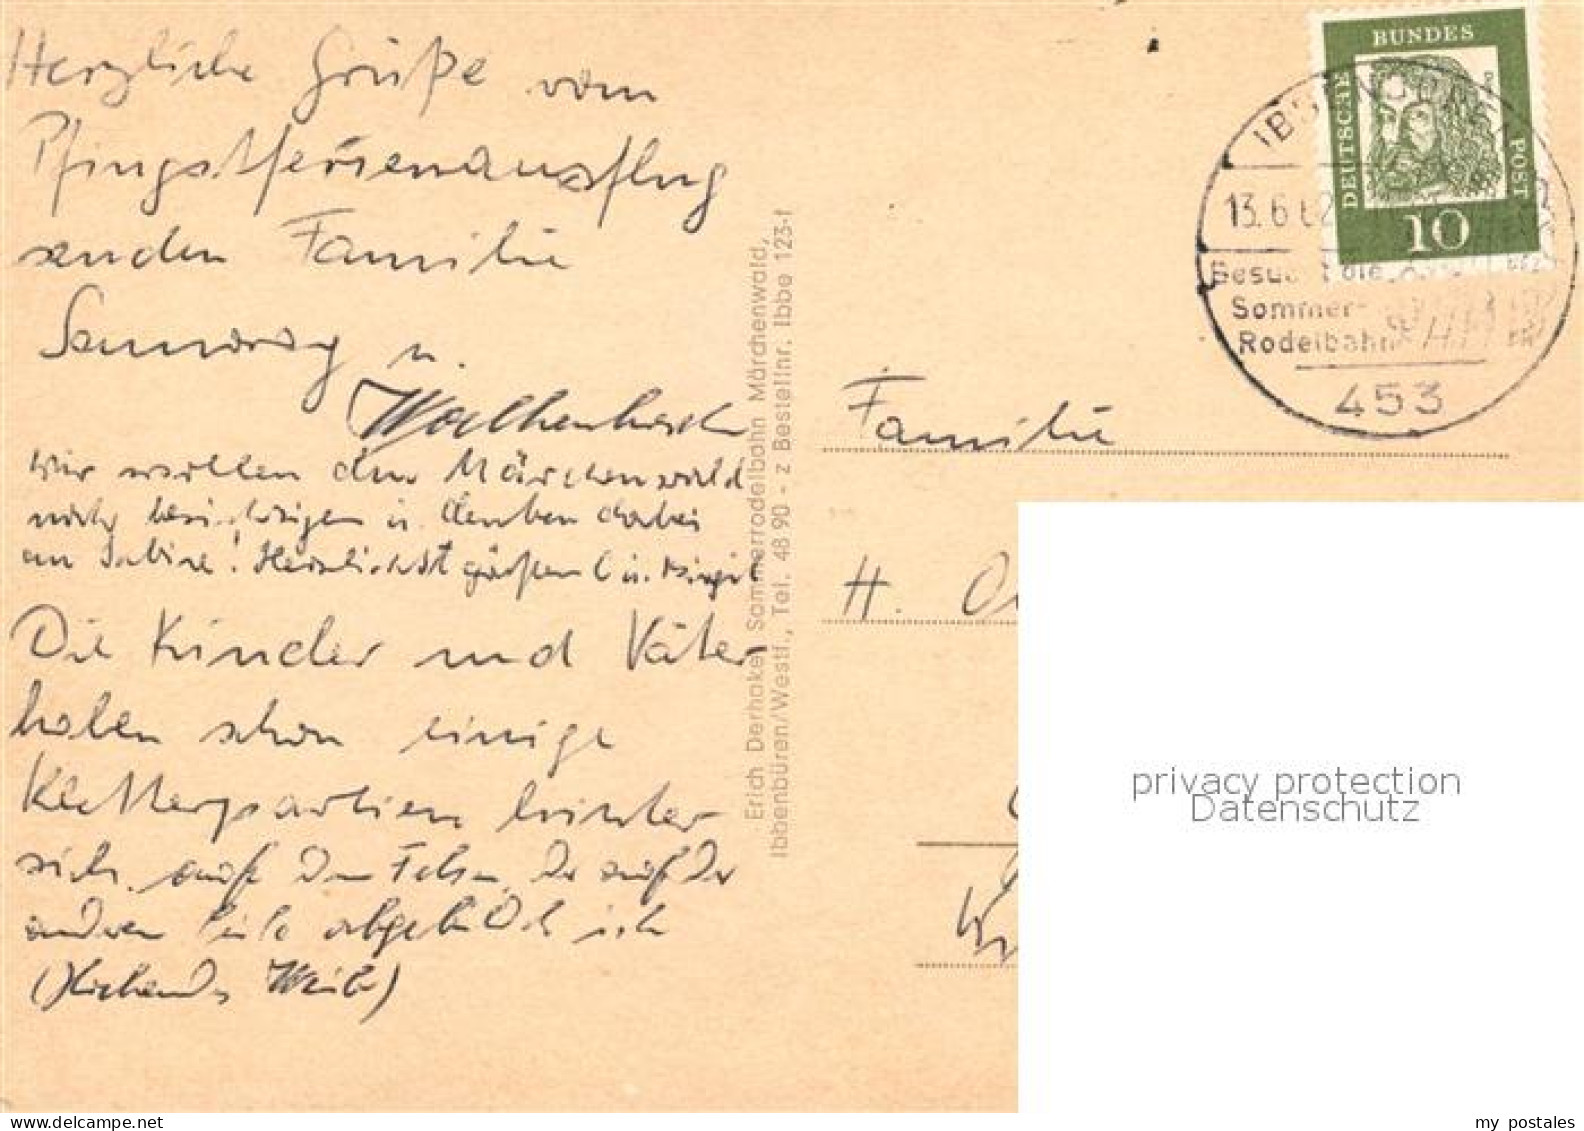 Herzliche Grüße vom
Pfingstferienausflug
senden Familie
u.
wir wollen den Märchenwald
noch besichtigen u. denken dabei
an Sabine! Herzlichst grüßen
Die Kinder und Väter
haben schon einige
Kletterpartien hinter
sich, auf den Felsen. Der auf der
anderen Seite abgebildet ist
Erich Derhake, Sommerrodelbahn Märchenwald,
Ibbenbüren/Westf., Tel. 48 90 - z Bestellnr. Ibbe 123-f
DEUTSCHE BUNDES POST
10
13.6.62
Besucht die
Sommer-
Rodelbahn
453
Familie
H.
privacy protection
Datenschutz
my postales
www.delcampe.net